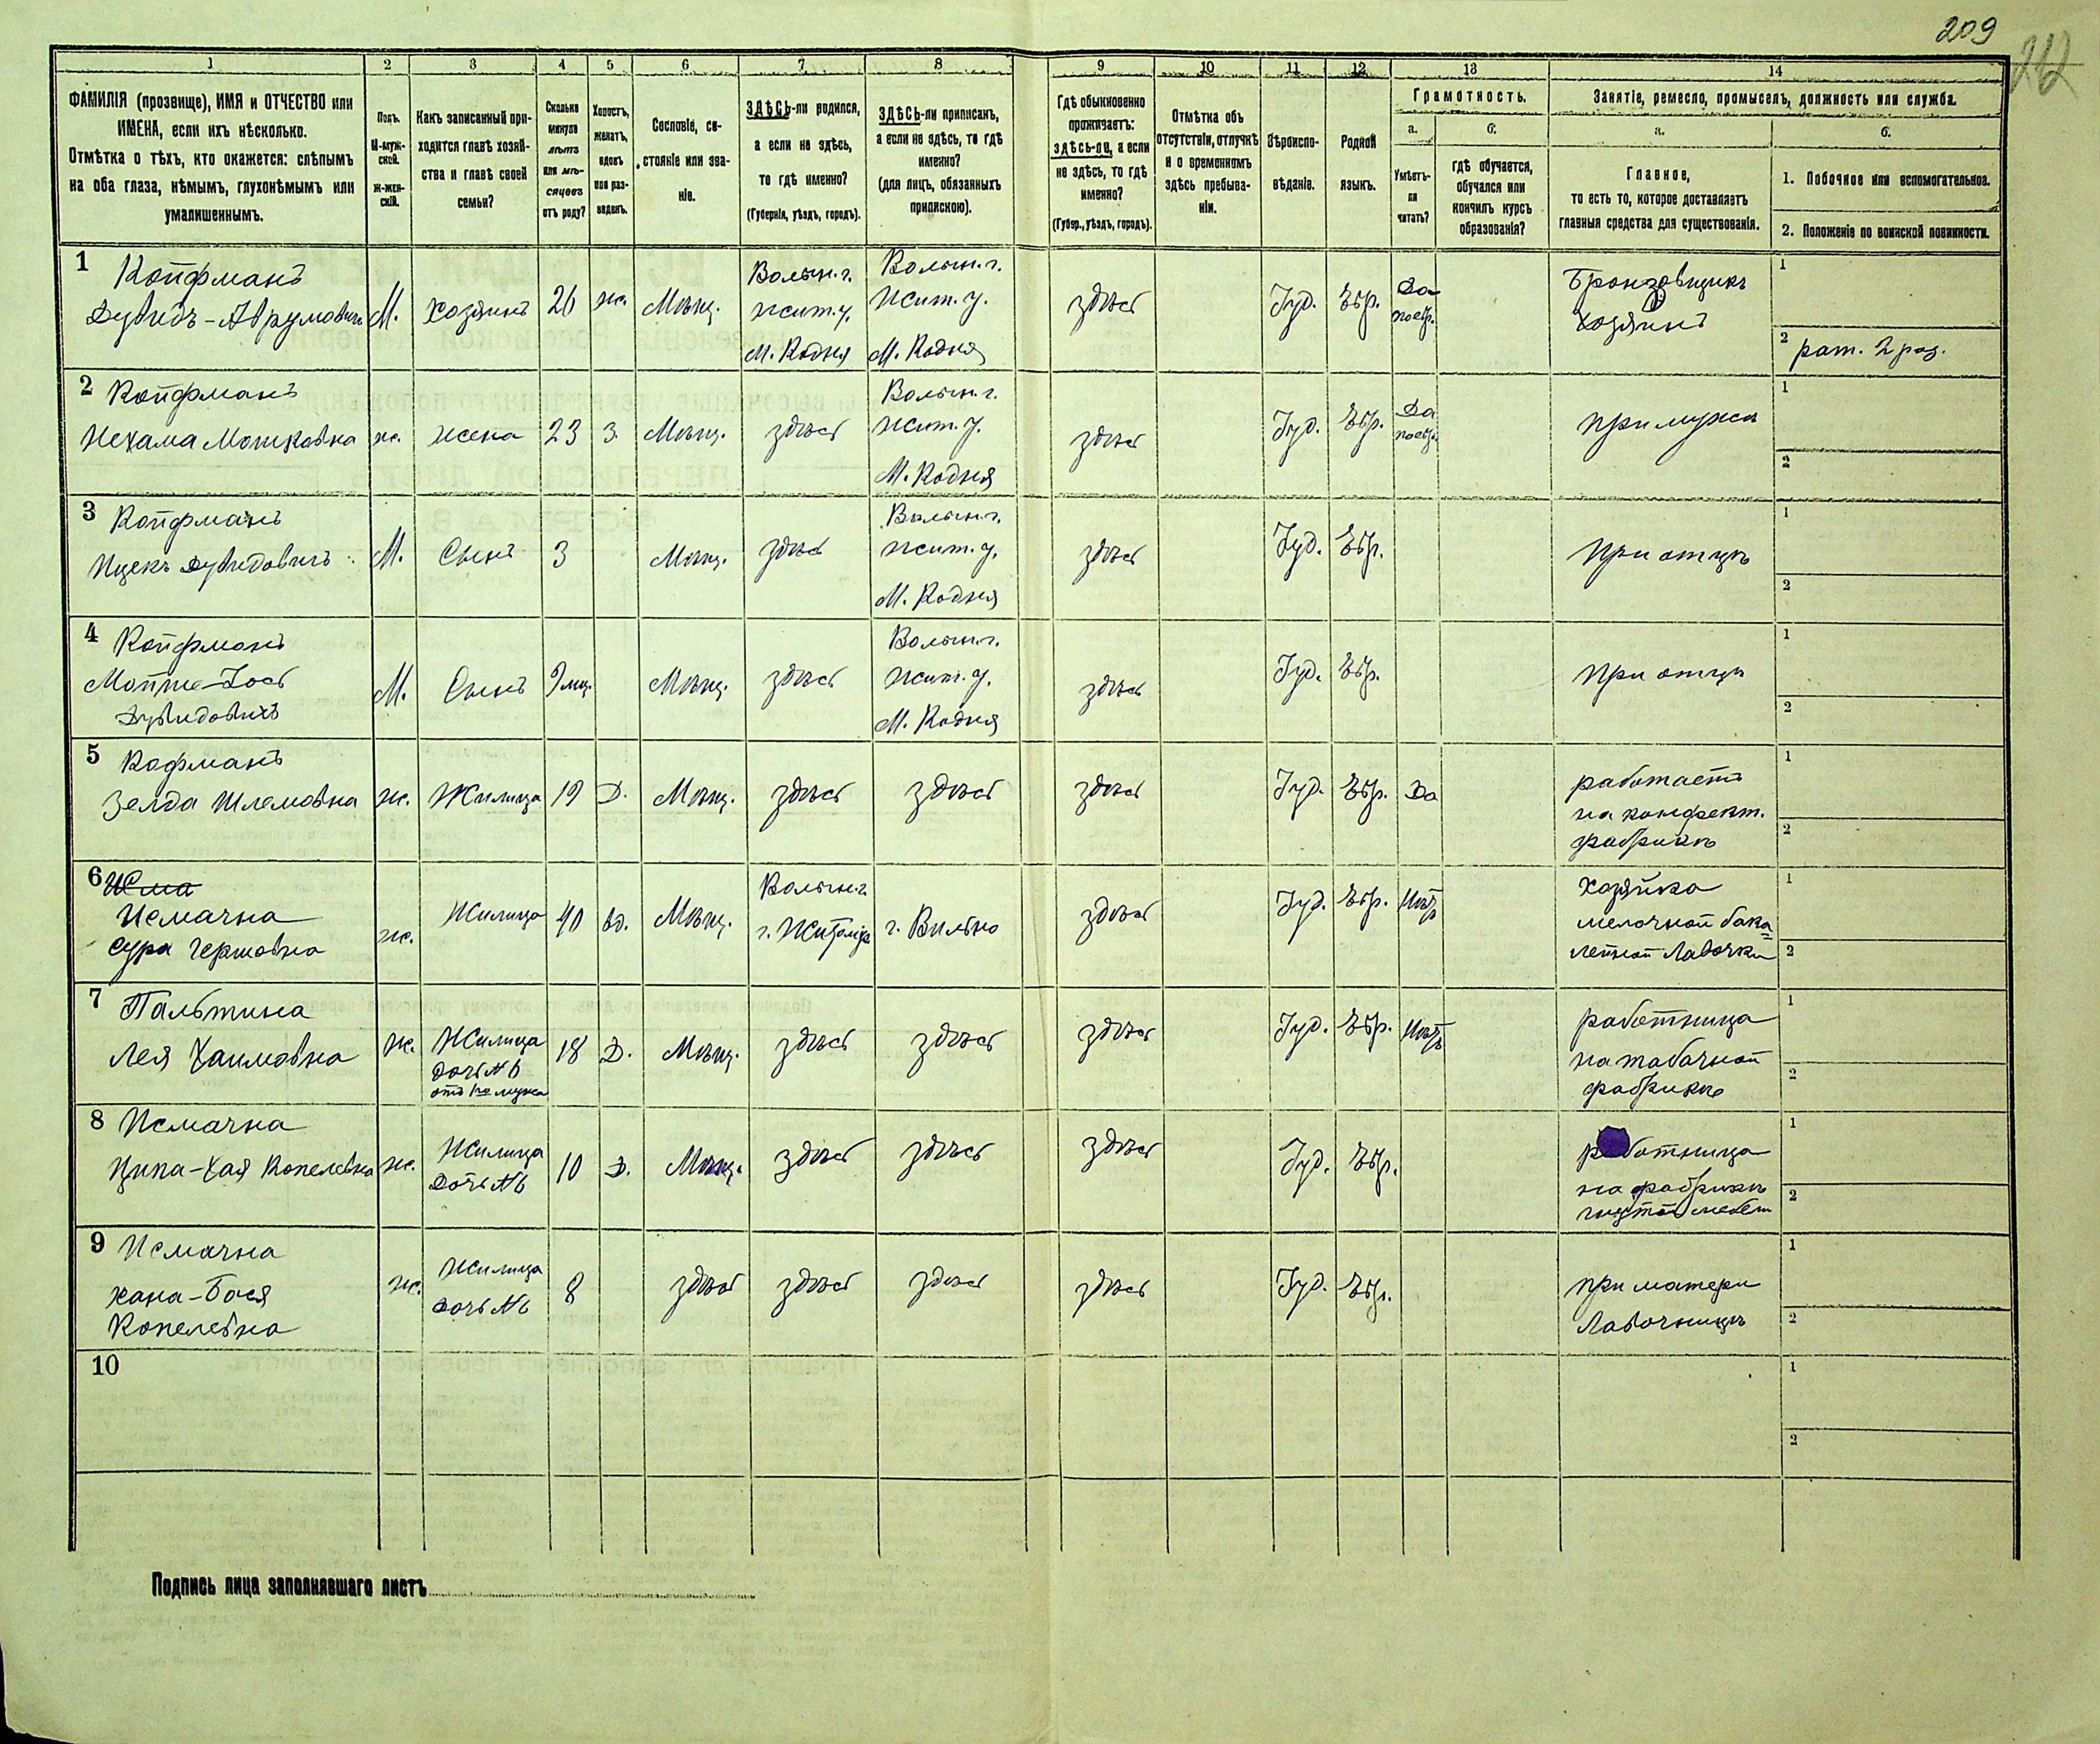 209
262
1 2 3 4 5 6 7 8 9 10 11 12 13 14
ФАМИЛІЯ (прозвище), ИМЯ и ОТЧЕСТВО или
ИМЕНА, если ихъ нѣсколько.
Отмѣтка о тѣхъ, кто окажется: слѣпымъ
на оба глаза, нѣмымъ, глухонѣмымъ или
умалишеннымъ.
Полъ.
М-муж-
ской.
Ж-жен-
скій.
Какъ записанный при-
ходится главѣ хозяй-
ства и главѣ своей
семьи?
Сколько
минуло
лѣтъ
или мѣ-
сяцевъ
отъ роду?
Холостъ,
женатъ,
вдовъ
или раз-
веденъ.
Сословіе, со-
стояніе или зва-
ніе.
ЗДѢСЬ-ли родился,
а если не здѣсь,
то гдѣ именно?
(Губернія, уѣздъ, городъ).
ЗДѢСЬ-ли приписанъ,
а если не здѣсь, то гдѣ
именно?
(для лицъ, обязанныхъ
припискою).
Гдѣ обыкновенно
проживаетъ:
здѣсь-ли, а если
не здѣсь, то гдѣ
именно?
(Губер., уѣздъ, городъ).
Отмѣтка объ
отсутствіи, отлучкѣ
и о временномъ
здѣсь пребыва-
ніи.
Вѣроиспо-
вѣданіе.
Родной
языкъ.
Грамотность.
а.
Умѣетъ-
ли
читать?
б.
гдѣ обучается,
обучался или
кончилъ курсъ
образованія?
Занятіе, ремесло, промыселъ, должность или служба.
а.
Главное,
то есть то, которое доставляетъ
главныя средства для существованія.
б.
1. Побочное или вспомогательное.
2. Положеніе по воинской повинности.
1 Койфманъ
Дувидъ-Аврумовичъ
М.
хозяинъ
26
ж.
Мѣщ.
Волын. г.
Жит. у.
М. Кодня
Волын. г.
Жит. у.
М. Кодня
здѣсь
Іуд.
Евр.
Да
поевр.
Бронзовщикъ
хозяинъ
1
2 рат. 2 раз.
2 Койфманъ
Нехама Мошковна
ж.
жена
23
З.
Мѣщ.
здѣсь
Волын. г.
Жит. у.
М. Кодня
здѣсь
Іуд.
Евр.
Да
поевр.
при мужѣ
1
2
3 Койфманъ
Ицекъ Дувидовичъ
М.
Сынъ
3
Мѣщ.
здѣсь
Волын. г.
Жит. у.
М. Кодня
здѣсь
Іуд.
Евр.
При отцѣ
1
2
4 Койфманъ
Дувидовичъ
М.
Сынъ
9 мц.
Мѣщ.
здѣсь
Волын. г.
Жит. у.
М. Кодня
здѣсь
Іуд.
Евр.
При отцѣ
1
2
5 Кофманъ
Зелда Шлемовна
ж.
Жилица
19
Д.
Мѣщ.
здѣсь
здѣсь
здѣсь
Іуд.
Евр.
Да
работаетъ
на конфект.
фабрикѣ
1
2
6
Исмачна
Сура Гершовна
ж.
Жилица
40
вд.
Мѣщ.
Волын. г.
г. Житомір
г. Вильно
здѣсь
Іуд.
Евр.
Нѣтъ
Хозяйка
мелочной бака
лейной Лавочки
1
2
7 Пальтина
Лея Хаимовна
ж.
Жилица
дочь № 6
отъ 1го мужа
18
Д.
Мѣщ.
здѣсь
здѣсь
здѣсь
Іуд.
Евр.
Нѣтъ
работница
на табачной
фабрикѣ
1
2
8 Исмачна
Ципа-Хая Копелевна
ж.
Жилица
Дочь № 6
10
Д.
Мѣщ.
здѣсь
здѣсь
здѣсь
Іуд.
Евр.
работница
на фабрикѣ
гнутой мебели
1
2
9 Исмачна
Хана-Бася
Копелевна
ж.
Жилица
дочь № 6
8
здѣсь
здѣсь
здѣсь
здѣсь
Іуд.
Евр.
при матери
Лавочницѣ
1
2
10
1
2
Подпись лица заполнявшаго листъ